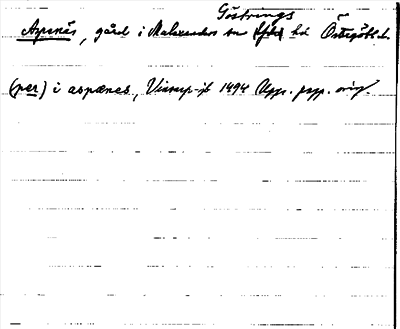 Göstrings
Aspenäs, gård i Malexanders sn hd Östergötl.
(per) i aspænes, Vinstorp-jb 1494 Upps. papp. orig.